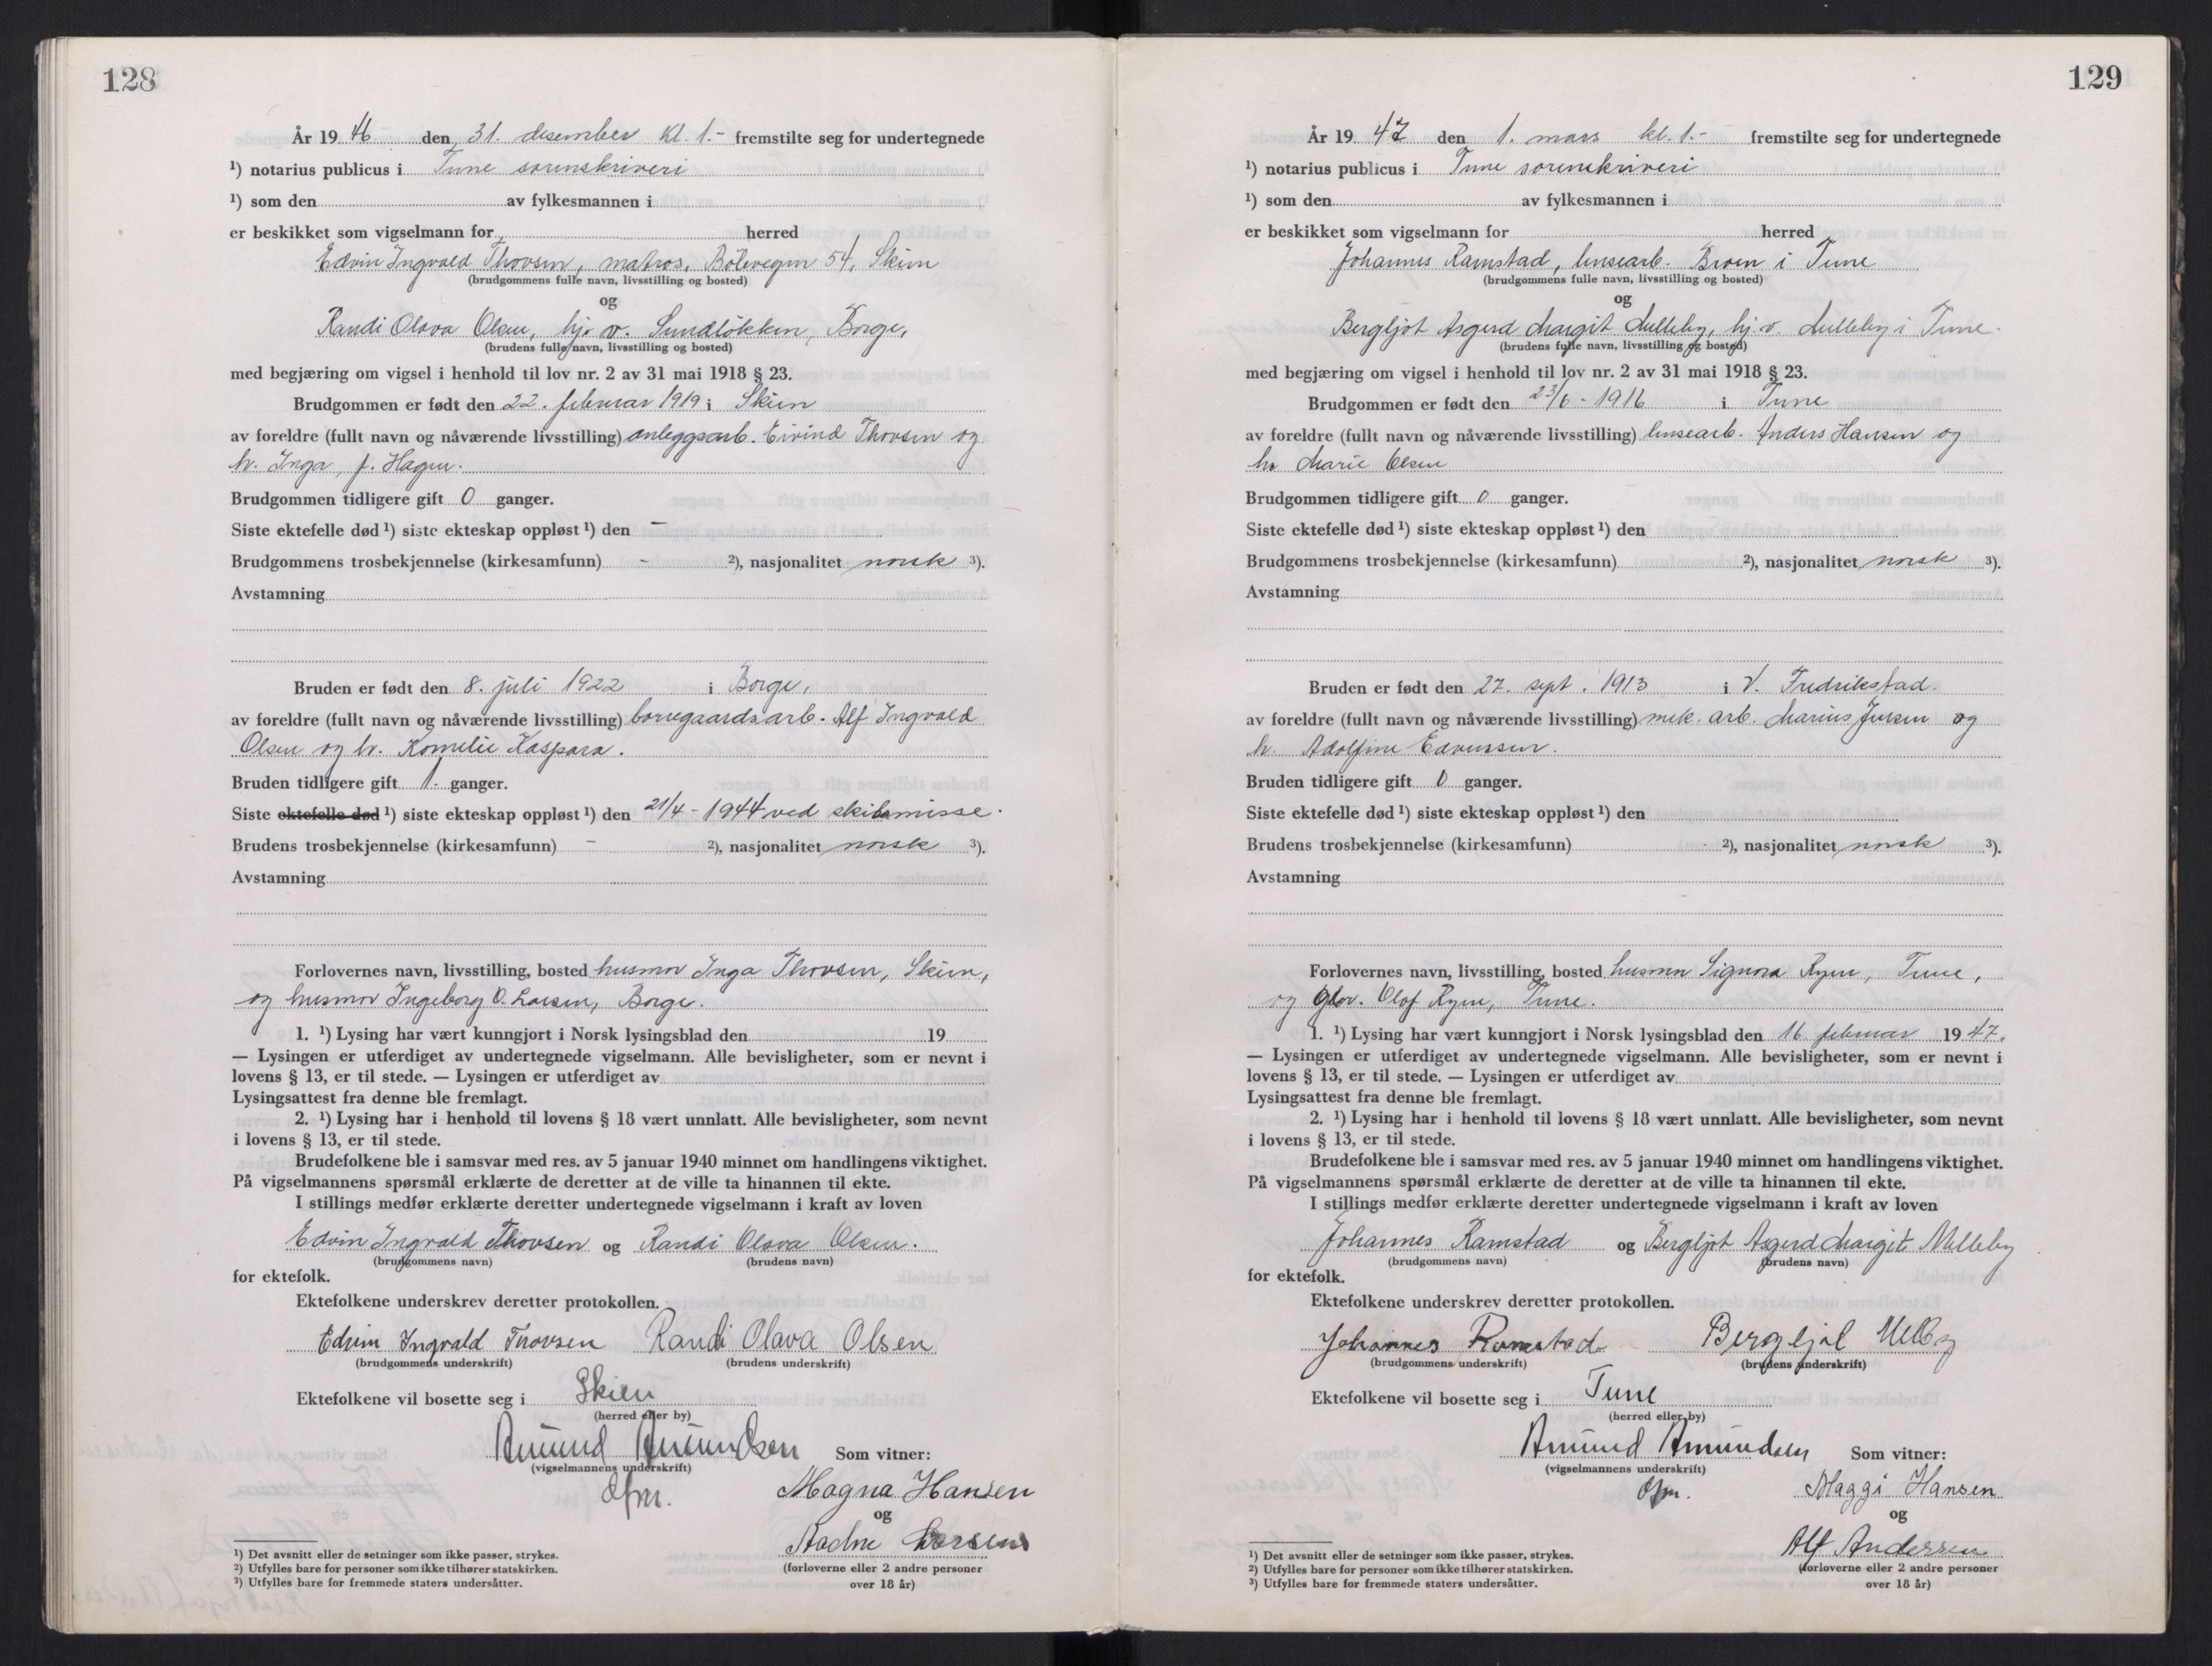 128
År 19 46 den 31. desember kl. 1.- fremstilte seg for undertegnede
¹) notarius publicus i Tune sorenskriveri
¹) som den av fylkesmannen i
er beskikket som vigselmann for herred
Edvin Ingvald Thovsen, matros, Bölevegen 54, Skien
(brudgommens fulle navn, livsstilling og bosted)
og
Randi Olava Olsen, hj. v. Sundlökken, Borge,
(brudens fulle navn, livsstilling og bosted)
med begjæring om vigsel i henhold til lov nr. 2 av 31 mai 1918 § 23.
Brudgommen er født den 22. februar 1919 i Skien
av foreldre (fullt navn og nåværende livsstilling) anleggsarb. Eivind Thovsen og
h. Inga, f. Hagen.
Brudgommen tidligere gift 0 ganger.
Siste ektefelle død ¹) siste ekteskap oppløst ¹) den –
Brudgommens trosbekjennelse (kirkesamfunn) - ²), nasjonalitet norsk ³).
Avstamning
Bruden er født den 8. juli 1922 i Borge,
av foreldre (fullt navn og nåværende livsstilling) borregaardsarb. Alf Ingvald
Olsen og h. Kornelie Kaspara.
Bruden tidligere gift 1. ganger.
Siste ektefelle død ¹) siste ekteskap oppløst ¹) den 21/4 - 1944 ved skilsmisse.
Brudens trosbekjennelse (kirkesamfunn) – ²), nasjonalitet norsk ³).
Avstamning
Forlovernes navn, livsstilling, bosted husmor Inga Thovsen, Skien,
og husmor Ingeborg O. Larsen, Borge.
1. ¹) Lysing har vært kunngjort i Norsk lysingsblad den 19
— Lysingen er utferdiget av undertegnede vigselmann. Alle bevisligheter, som er nevnt i
lovens § 13, er til stede. — Lysingen er utferdiget av
Lysingsattest fra denne ble fremlagt.
2. ¹) Lysing har i henhold til lovens § 18 vært unnlatt. Alle bevisligheter, som nevnt
i lovens § 13, er til stede.
Brudefolkene ble i samsvar med res. av 5 januar 1940 minnet om handlingens viktighet.
På vigselmannens spørsmål erklærte de deretter at de ville ta hinannen til ekte.
I stillings medfør erklærte deretter undertegnede vigselmann i kraft av loven
Edvin Ingvald Thovsen og Randi Olava Olsen.
(brudgommens navn) (brudens navn)
for ektefolk.
Ektefolkene underskrev deretter protokollen.
Edvin Ingvald Thovsen Randi Olava Olsen
(brudgommens underskrift) (brudens underskrift)
Ektefolkene vil bosette seg i Skien
(herred eller by)
Amund Amundsen Som vitner:
(vigselmannens underskrift)
Magna Hansen
og
Larsen
(forloverne eller 2 andre personer
over 18 år)
¹) Det avsnitt eller de setninger som ikke passer, strykes.
²) Utfylles bare for personer som ikke tilhører statskirken.
³) Utfylles bare for fremmede staters undersåtter.
129
År 19 47 den 1. mars kl. 1.- fremstilte seg for undertegnede
¹) notarius publicus i Tune sorenskriveri
¹) som den av fylkesmannen i
er beskikket som vigselmann for herred
Johannes Ramstad, lensearb. Broen i Tune
(brudgommens fulle navn, livsstilling og bosted)
og
Bergljot Asgerd Margit Melleby, hj. v. Melleby i Tune.
(brudens fulle navn, livsstilling og bosted)
med begjæring om vigsel i henhold til lov nr. 2 av 31 mai 1918 § 23.
Brudgommen er født den 23/6 - 1916 i Tune
av foreldre (fullt navn og nåværende livsstilling) lensearb. Anders Hansen og
h. Marie Olsen
Brudgommen tidligere gift 0 ganger.
Siste ektefelle død ¹) siste ekteskap oppløst ¹) den
Brudgommens trosbekjennelse (kirkesamfunn) ²), nasjonalitet norsk ³).
Avstamning
Bruden er født den 27. sept. 1913 i V. Fredrikstad.
av foreldre (fullt navn og nåværende livsstilling) mek. arb. Marius Jensen og
h. Adolfine Edvessen.
Bruden tidligere gift 0 ganger.
Siste ektefelle død ¹) siste ekteskap oppløst ¹) den
Brudens trosbekjennelse (kirkesamfunn) ²), nasjonalitet norsk ³).
Avstamning
Forlovernes navn, livsstilling, bosted husmor Signora Ryen, Tune,
og Olof Ryen, Tune.
1. ¹) Lysing har vært kunngjort i Norsk lysingsblad den 16 februar 19 47.
— Lysingen er utferdiget av undertegnede vigselmann. Alle bevisligheter, som er nevnt i
lovens § 13, er til stede. — Lysingen er utferdiget av
Lysingsattest fra denne ble fremlagt.
2. ¹) Lysing har i henhold til lovens § 18 vært unnlatt. Alle bevisligheter, som nevnt
i lovens § 13, er til stede.
Brudefolkene ble i samsvar med res. av 5 januar 1940 minnet om handlingens viktighet.
På vigselmannens spørsmål erklærte de deretter at de ville ta hinannen til ekte.
I stillings medfør erklærte deretter undertegnede vigselmann i kraft av loven
Johannes Ramstad og Bergljot Asgerd Margit Melleby
(brudgommens navn) (brudens navn)
for ektefolk.
Ektefolkene underskrev deretter protokollen.
Johannes Ramstad Bergljot
(brudgommens underskrift) (brudens underskrift)
Ektefolkene vil bosette seg i Tune
(herred eller by)
Amund Amundsen Som vitner:
(vigselmannens underskrift)
Maggi Hansen
og
Alf Andersen
(forloverne eller 2 andre personer
over 18 år)
¹) Det avsnitt eller de setninger som ikke passer, strykes.
²) Utfylles bare for personer som ikke tilhører statskirken.
³) Utfylles bare for fremmede staters undersåtter.